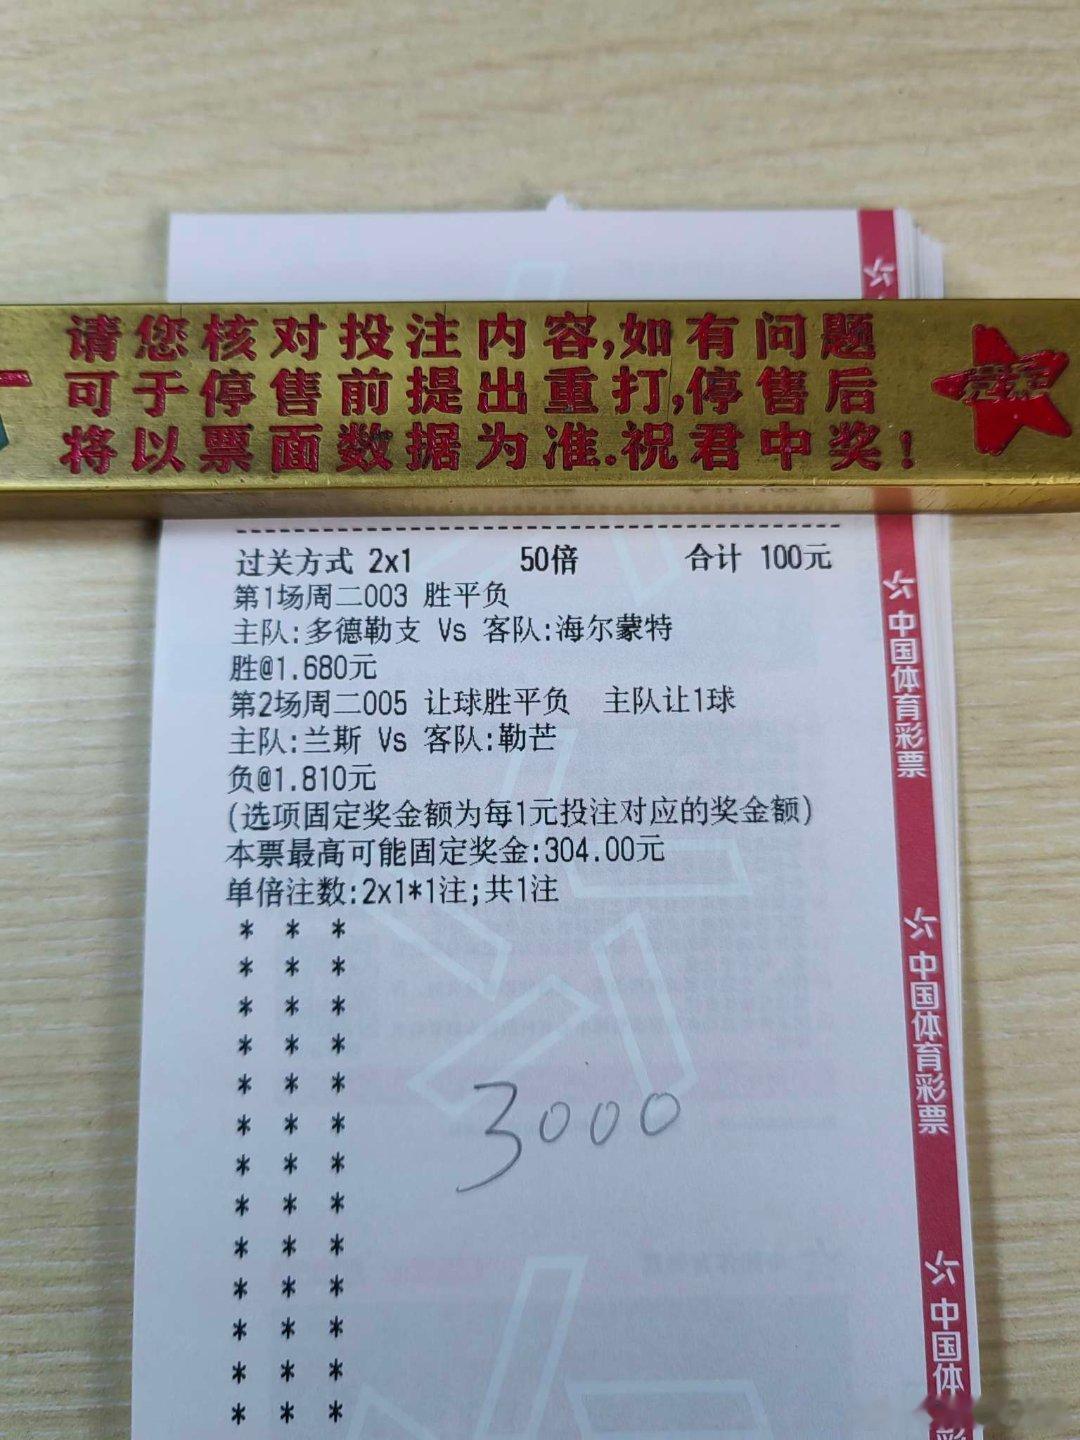 请您核对投注内容,如有问题
可于停售前提出重打,停售后
将以票面数据为准.祝君中奖!
过关方式 2x1 50倍 合计 100元
第1场周二003 胜平负
主队:多德勒支 Vs 客队:海尔蒙特
胜@1.680元
第2场周二005 让球胜平负 主队让1球
主队:兰斯 Vs 客队:勒芒
负@1.810元
(选项固定奖金额为每1元投注对应的奖金额)
本票最高可能固定奖金:304.00元
单倍注数:2x1*1注;共1注
* * *
* * *
* * *
* * *
* * *
* * *
* * *
* * *
* * *
* * *
* * *
* * *
* * *
3000
中国体育彩票
中国体育彩票
中国体彩